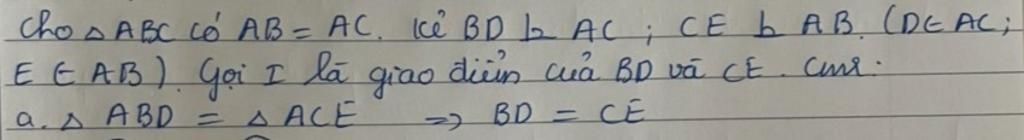 Cho △ ABC có AB = AC. Kẻ BD ⊥ AC ; CE ⊥ AB. (D ∈ AC ;
E ∈ AB). Gọi I là giao điểm của BD và CE. Cmr :
a. △ ABD = △ ACE ⇒ BD = CE